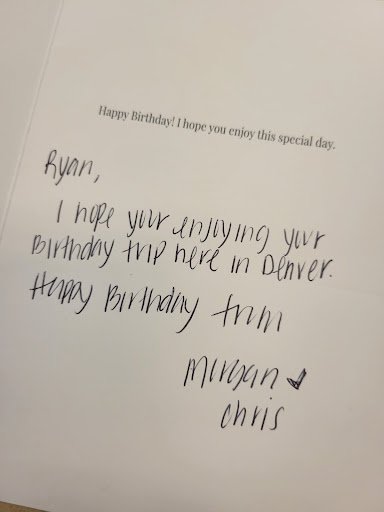 Happy Birthday! I hope you enjoy this special day.
Ryan,
I hope your enjoying your
Birthday trip here in Denver.
Happy Birthday from
Morgan
Chris